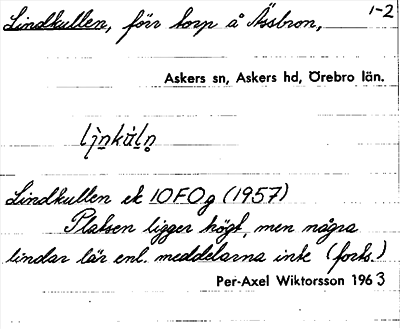 Lindkullen, förr torp å Åssbron, 1-2
Askers sn, Askers hd, Örebro län.
Lindkullen ek 10F0g (1957)
Platsen ligger högt, men några
lindar lär enl. meddelarna inte (forts.)
Per-Axel Wiktorsson 1963